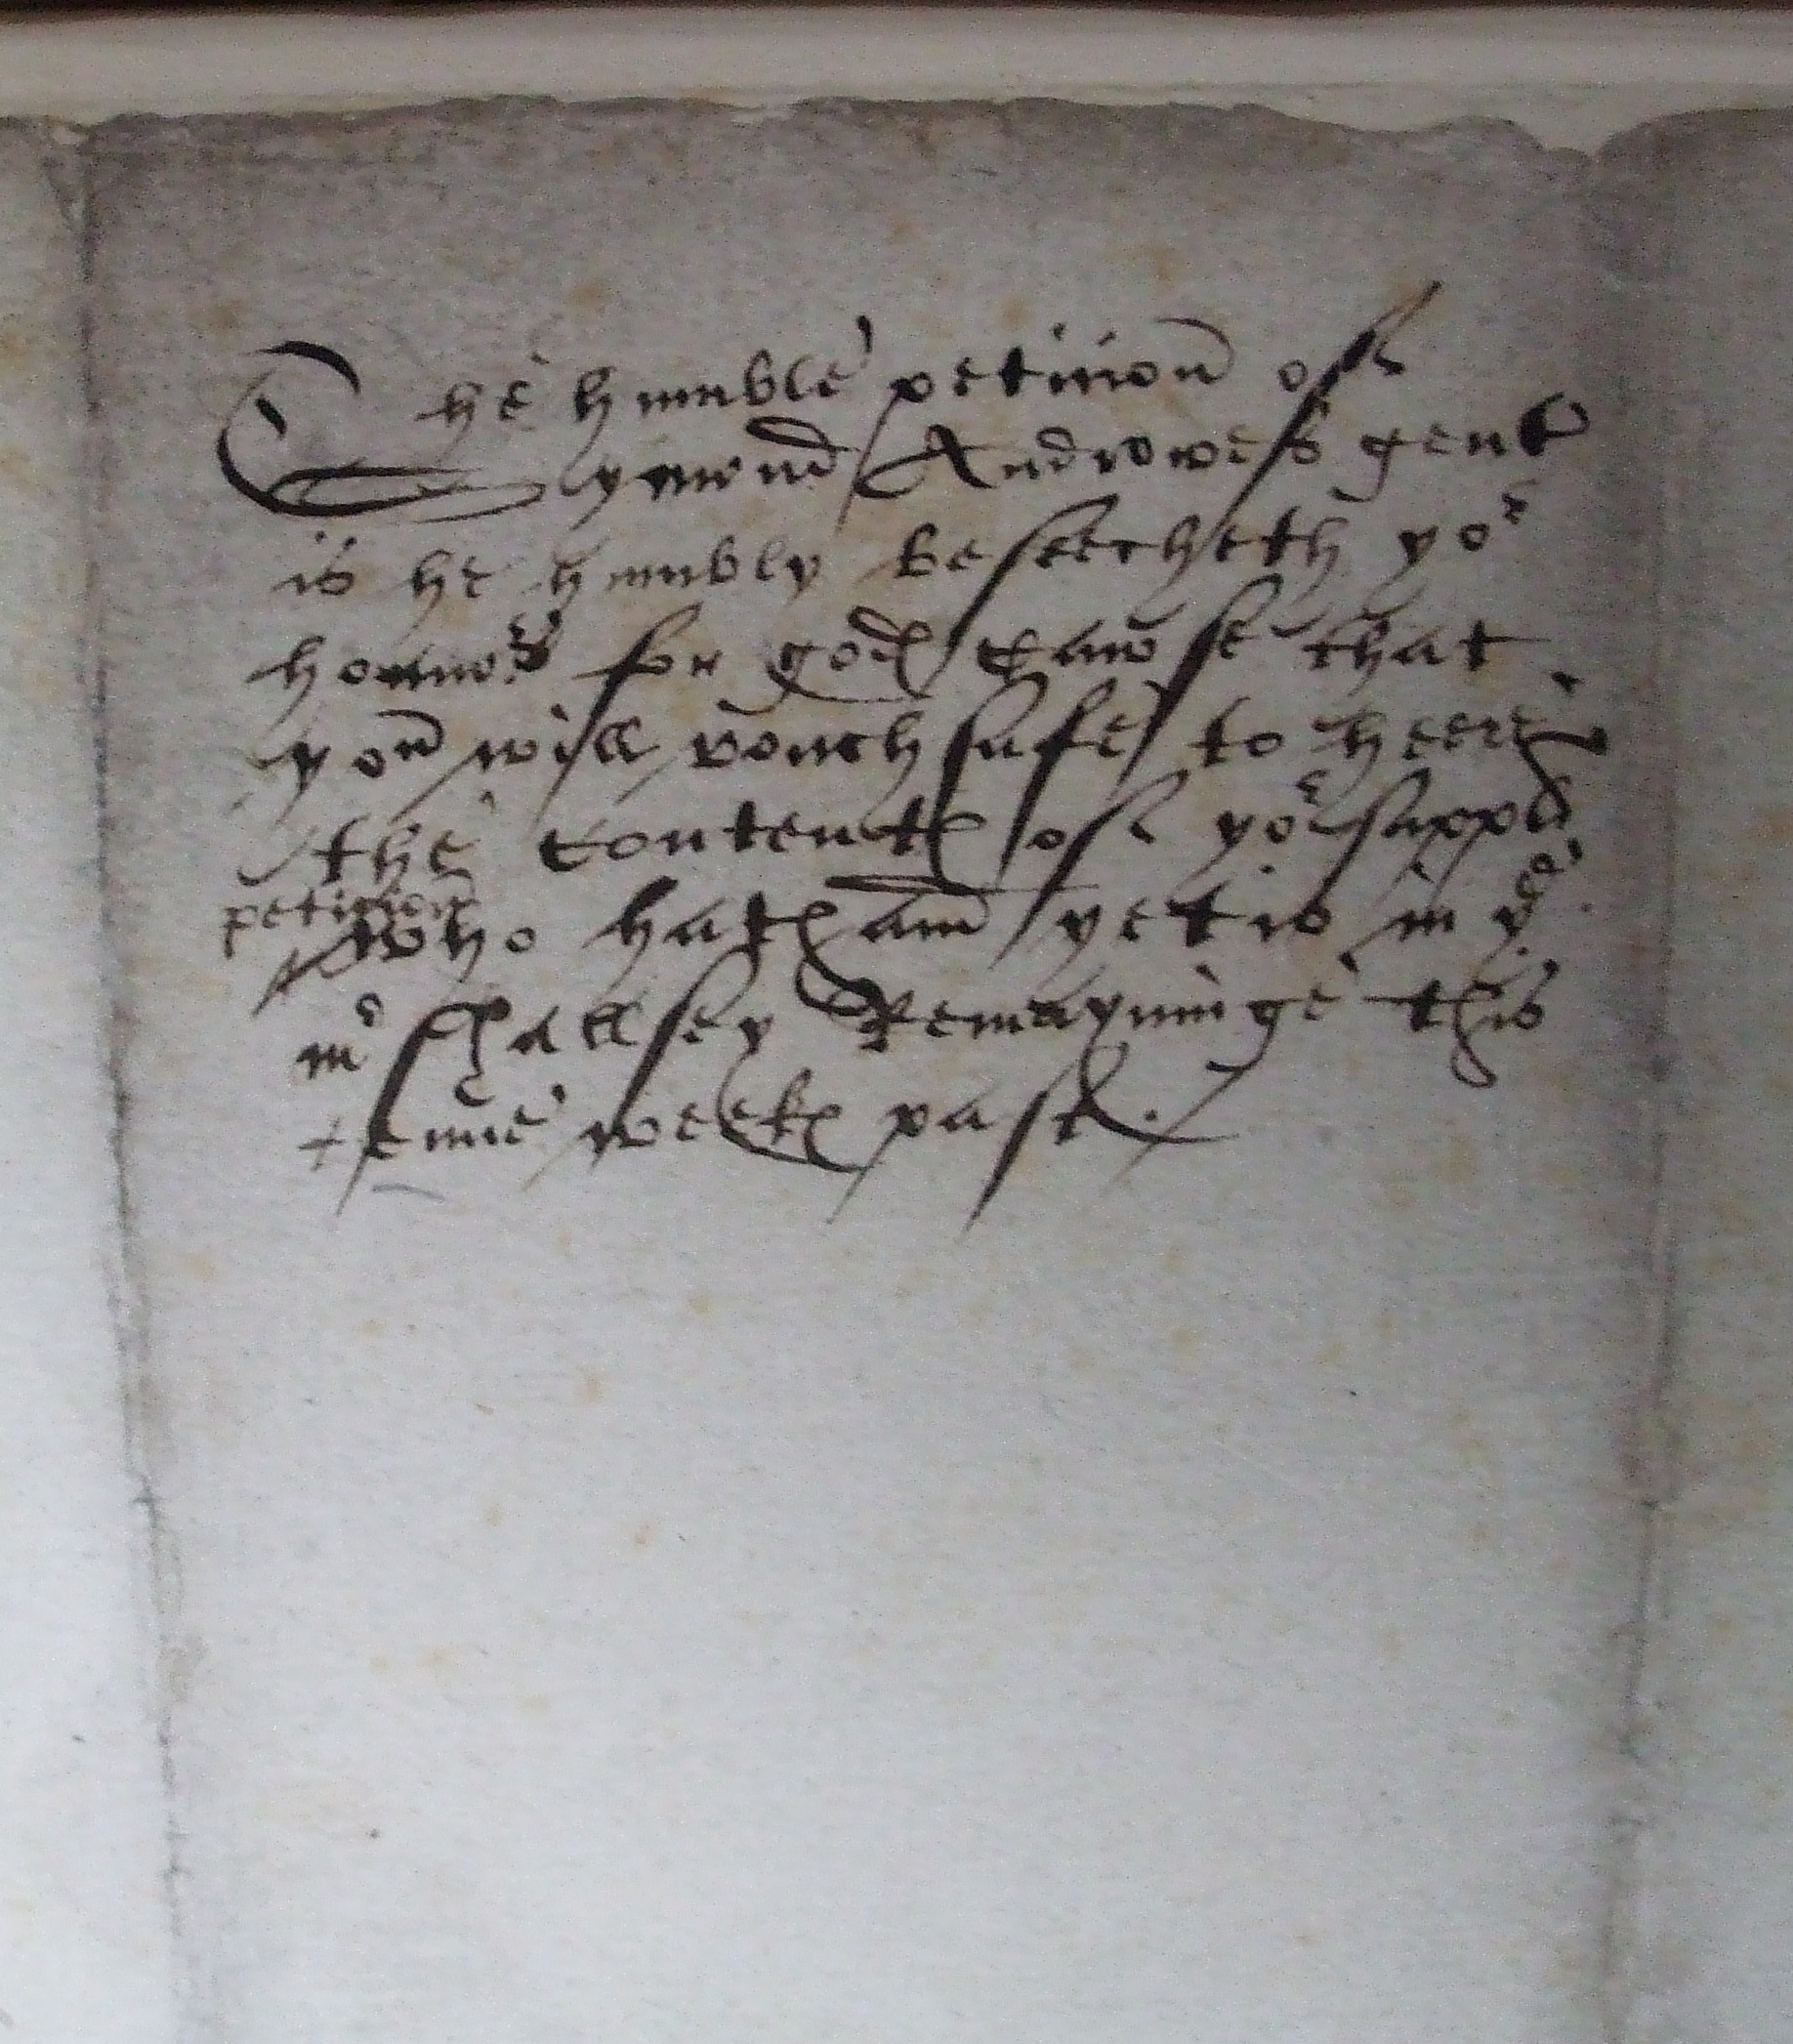 The humble petition of
Symond Androwes gent
is he humbly beseecheth yor
honnors for gods cawse that
you will vouchsafe to heere
the contentes of yor supplt
petition
who hath and yet is in ye
mrshallsey Remayninge this
senne weekes past